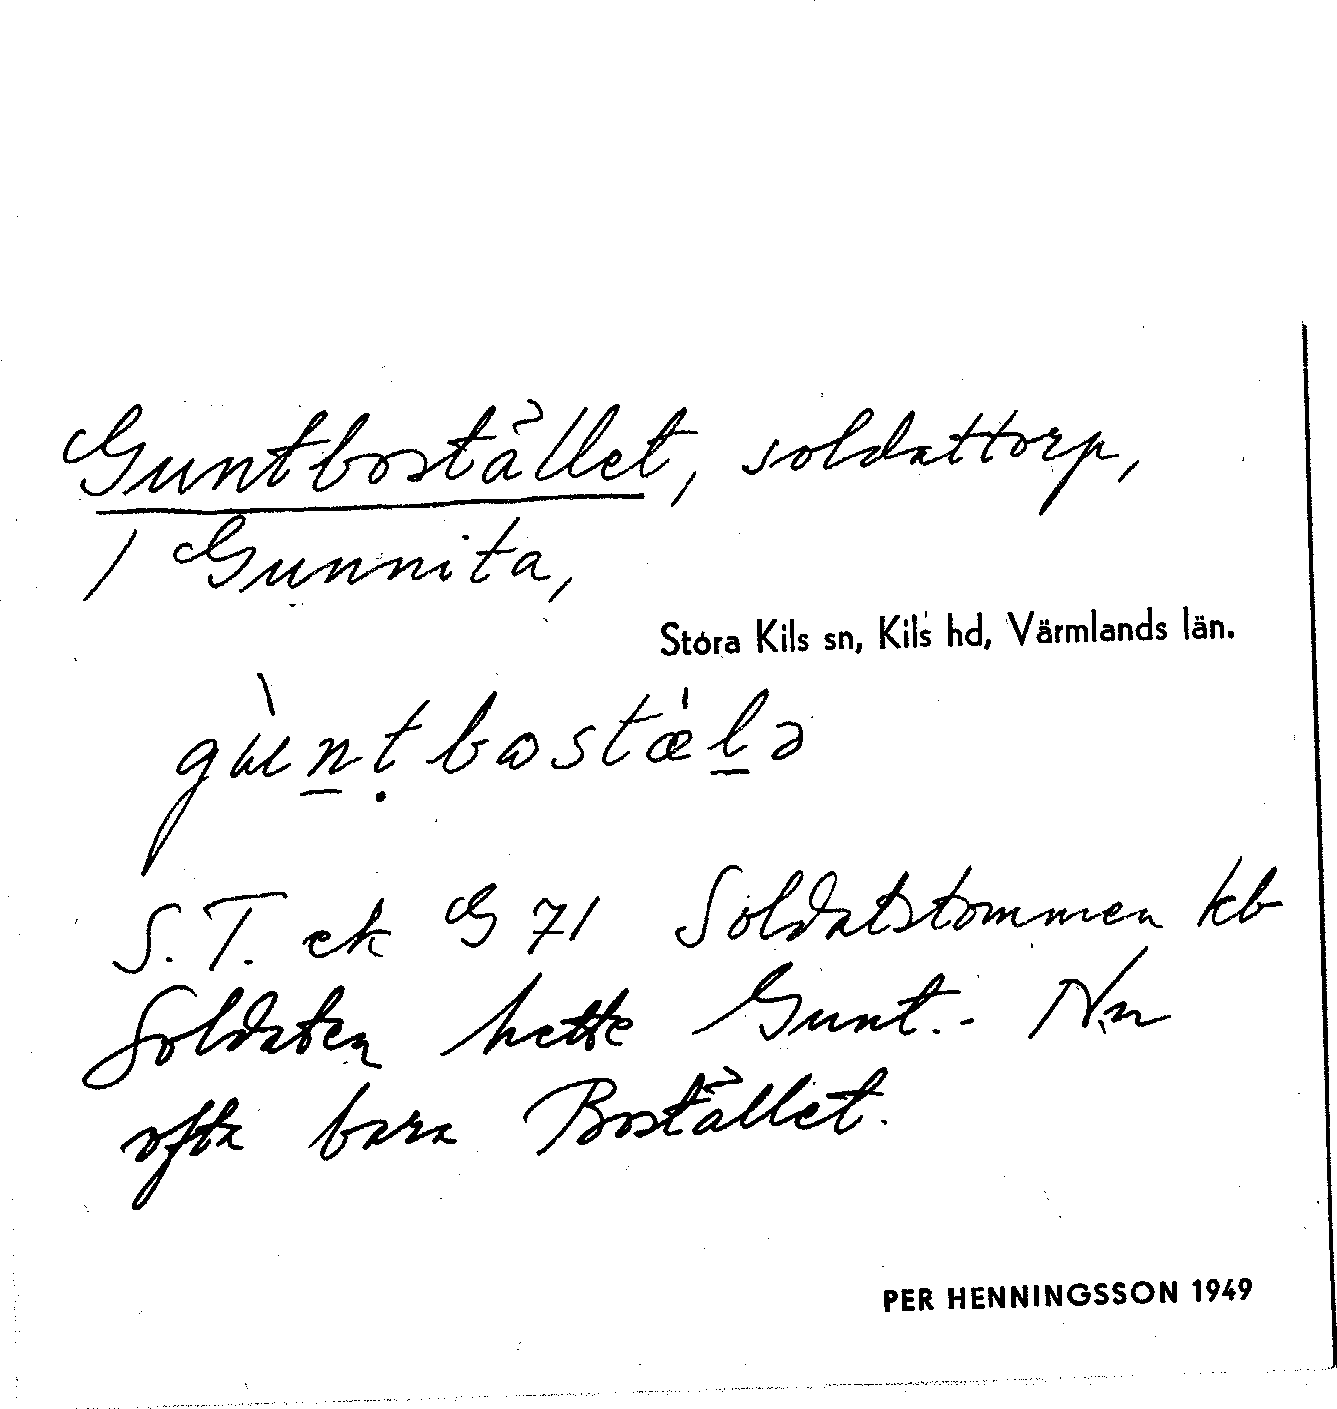 Guntbostället, soldattorp,
/ Gunnita,
Stora Kils sn, Kils hd, Värmlands län.
gùn̲ṭbostæ̀l̲ə
S. T. ek G 71 Soldatstommen kb
Soldaten hette Gunt.- Nu
ofta bara Bostället.
PER HENNINGSSON 1949